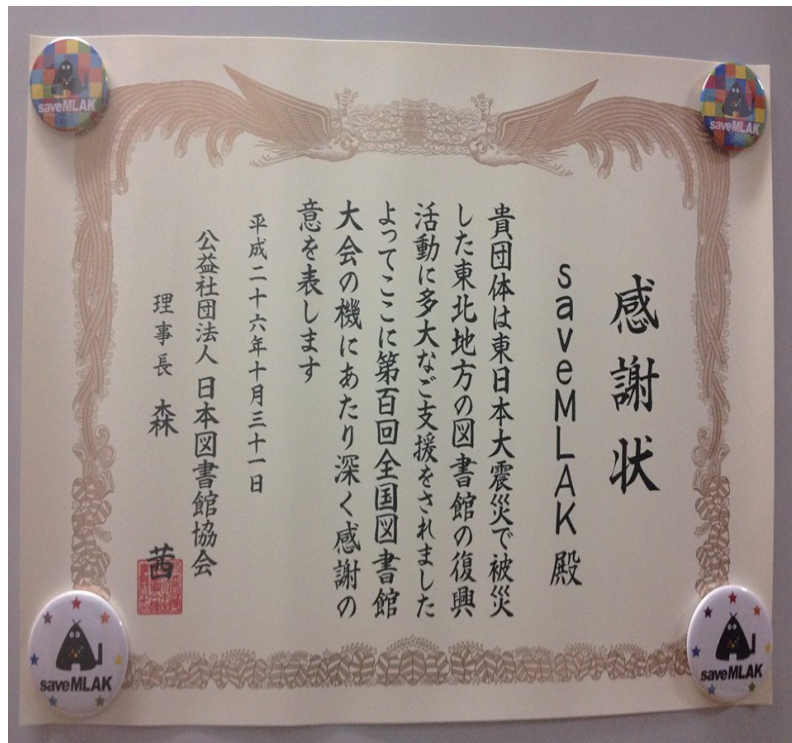 感謝状
saveMLAK 殿
貴団体は東日本大震災で被災
した東北地方の図書館の復興
活動に多大なご支援をされました
よってここに第百回全国図書館
大会の機にあたり深く感謝の
意を表します
平成二十六年十月三十一日
公益社団法人 日本図書館協会
理事長 森 茜
saveMLAK
saveMLAK
saveMLAK
saveMLAK